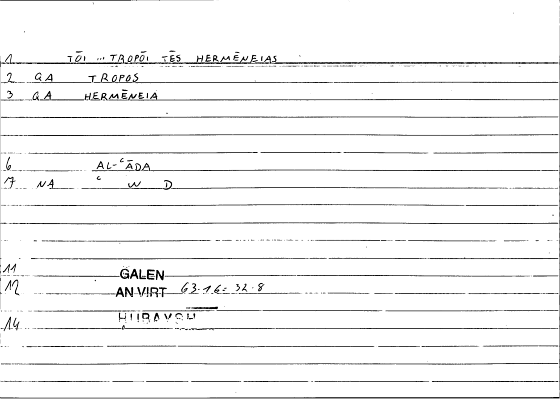 1 TŌI ... TROPŌI TĒS HERMĒNEIAS
2 QA TROPOS
3 QA HERMĒNEIA
6 AL-ʿĀDA
7 NA ʿ W D
11 GALEN
12 AN VIRT 63.16 = 32.8
14 HUBAYSH